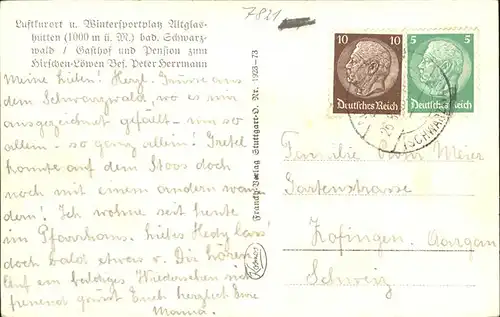 7821
Luftkurort u. Wintersportplatz Altglas-
hütten (1000 m ü. M.) bad. Schwarz-
wald / Gasthof und Pension zum
Hirschen-Löwen Bes. Peter Herrmann
Meine Lieben! Herzl. Grüsse aus
dem Schwarzwald, wo es mir
ausgezeichnet gefällt - um so
allein - so ganz allein! Gretel
konnte auf dem Stoos doch
noch mit einem andern wan-
dern! Ich wohne seit heute
im Pfarrhaus. Liebes Hedy lass
doch bald etwas v. Dir hören.
Auf ein baldiges Wiedersehen sich
freuend grüsst Euch herzlich Eure
Mama.
Franckh-Verlag Stuttgart-O. Nr. 1923-73
Kosmos
10 10
Deutsches Reich
5 5
Deutsches Reich
(SCHWAR
Familie Meier
Gartenstrasse
Zofingen. Aargau
Schweiz